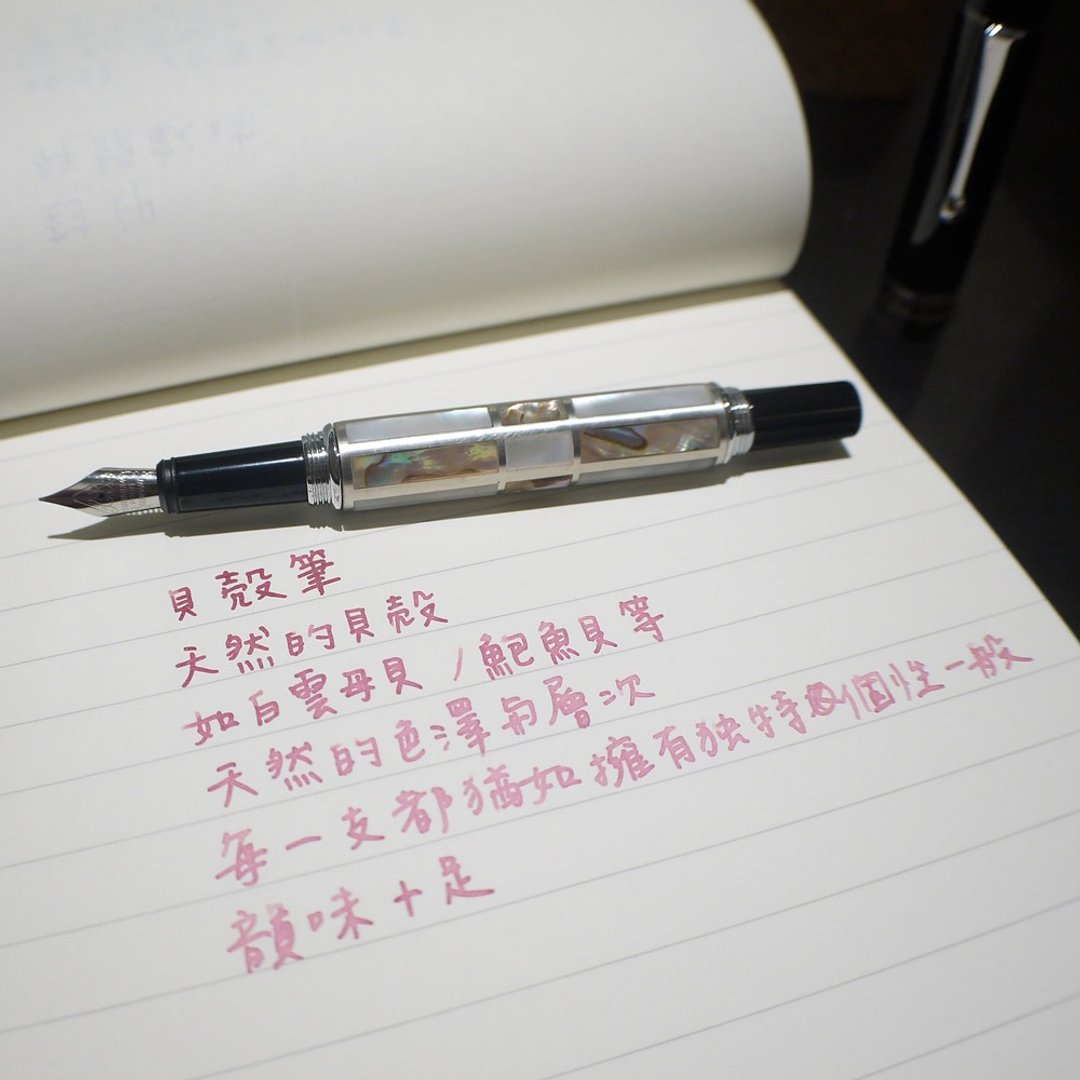 貝殼筆
天然的貝殼
如白雲母貝/鮑魚貝等
天然的色澤与層次
每一支都猶如擁有独特的個性一般
韻味十足